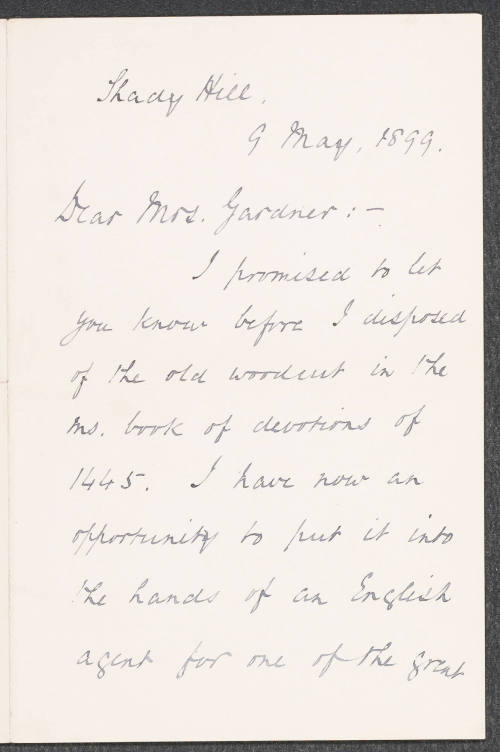 Shady Hill.
9 May, 1899.
Dear Mrs. Gardner:—
I promised to let
you know before I disposed
of the old woodcut in the
ms. book of devotions of
1445. I have now an
opportunity to put it into
the hands of an English
agent for one of the great